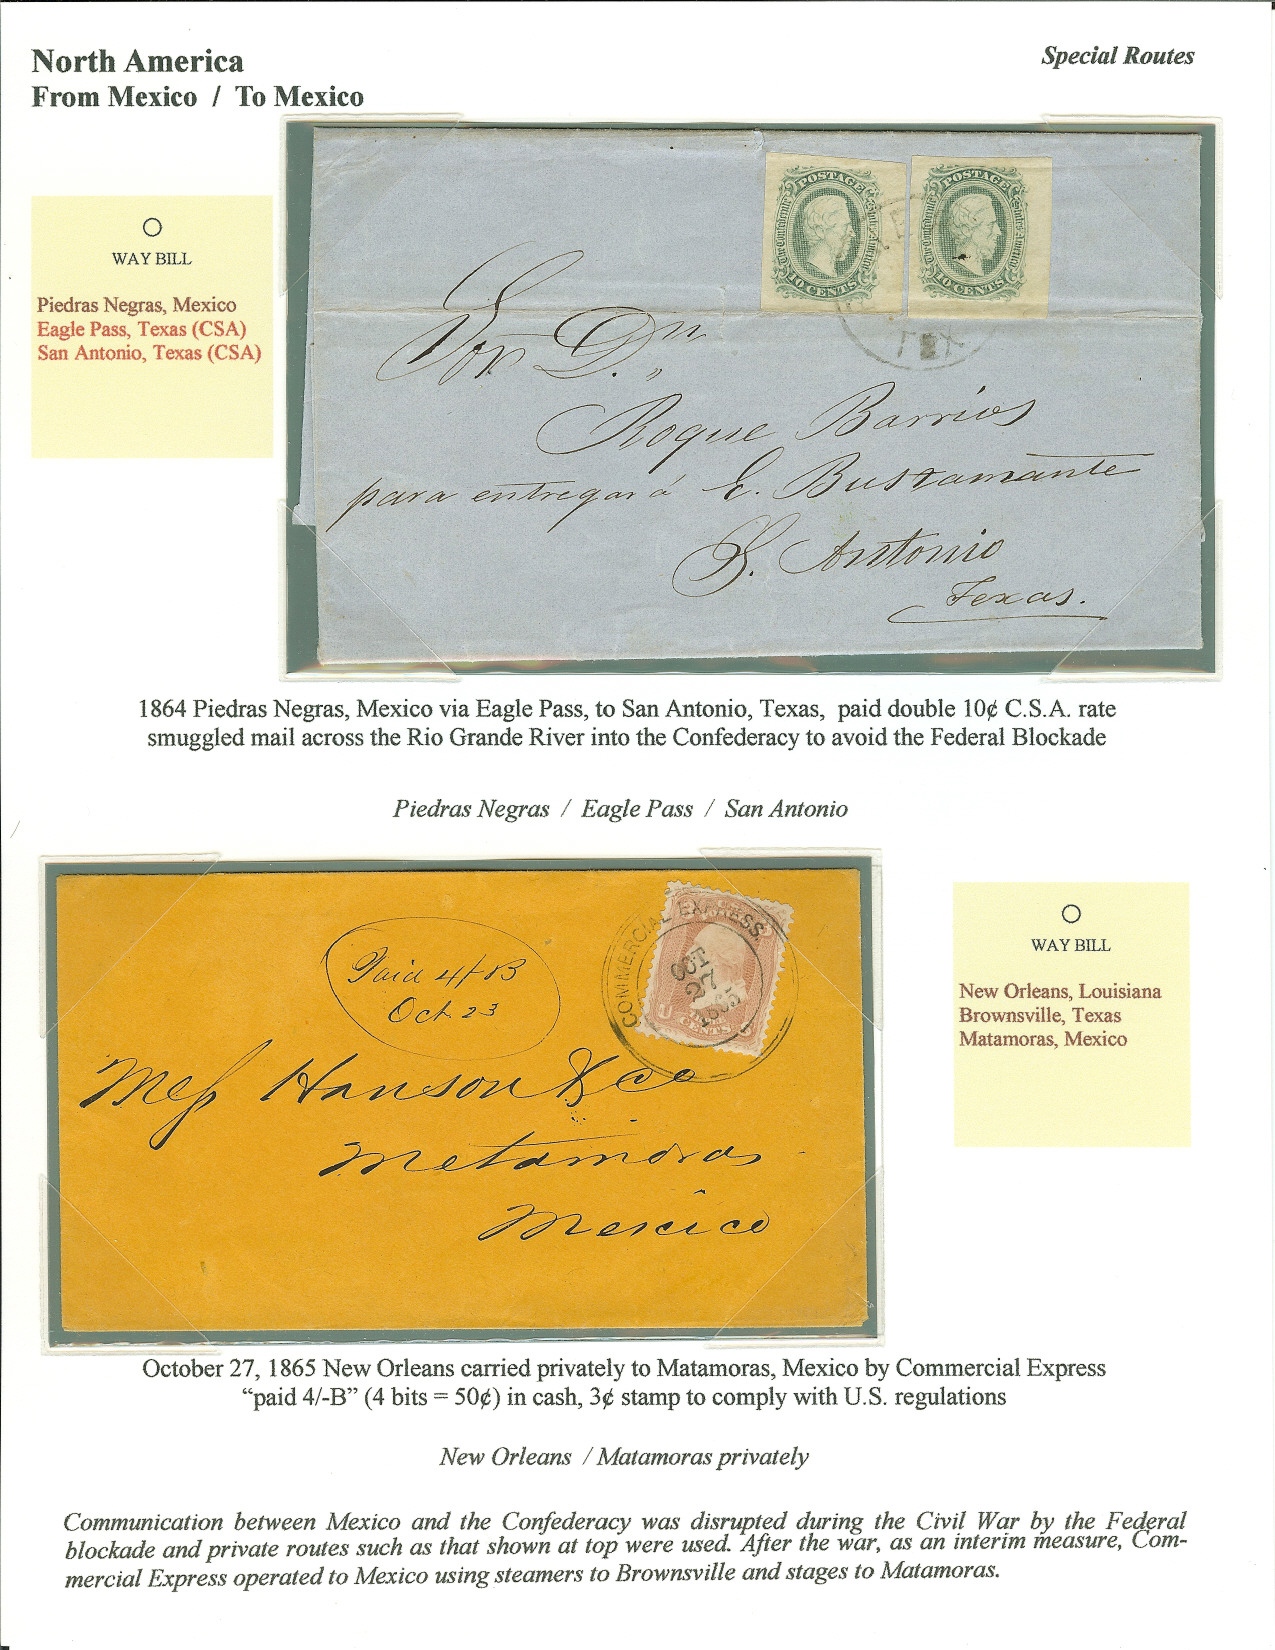 North America
Special Routes
From Mexico / To Mexico
WAY BILL
Piedras Negras, Mexico
Eagle Pass, Texas (CSA)
San Antonio, Texas (CSA)
POSTAGE
The Confederate States of America
10 CENTS
POSTAGE
The Confederate States of America
10 CENTS
TEX
Sor Dn
Roque Barrios
para entregar á E. Bustamante
S. Antonio
Texas.
1864 Piedras Negras, Mexico via Eagle Pass, to San Antonio, Texas, paid double 10¢ C.S.A. rate
smuggled mail across the Rio Grande River into the Confederacy to avoid the Federal Blockade
Piedras Negras / Eagle Pass / San Antonio
Paid 4/-B
Oct. 23
COMMERCIAL EXPRESS
OCT
27
1865
U
CENTS
Mess Hanson & Co
Metamoras
Mexico
WAY BILL
New Orleans, Louisiana
Brownsville, Texas
Matamoras, Mexico
October 27, 1865 New Orleans carried privately to Matamoras, Mexico by Commercial Express
“paid 4/-B” (4 bits = 50¢) in cash, 3¢ stamp to comply with U.S. regulations
New Orleans / Matamoras privately
Communication between Mexico and the Confederacy was disrupted during the Civil War by the Federal
blockade and private routes such as that shown at top were used. After the war, as an interim measure, Com-
mercial Express operated to Mexico using steamers to Brownsville and stages to Matamoras.